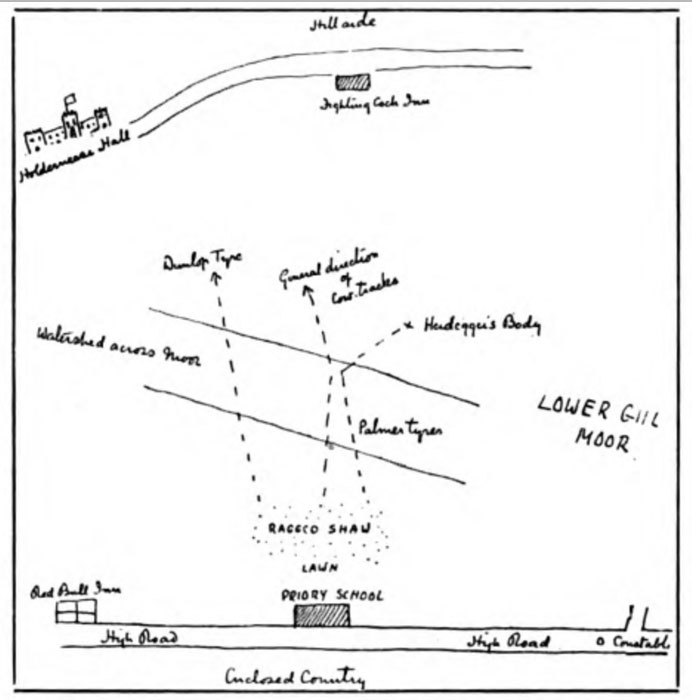 Hillside
Fighting Cock Inn
Holdernesse Hall
Dunlop Tyre
General direction
of
Cow-tracks
Heidegger's Body
Watershed across Moor
LOWER GILL
MOOR
Palmer tyres
RAGGED SHAW
LAWN
PRIORY SCHOOL
Red Bull Inn
High Road
High Road
Constable
Enclosed Country